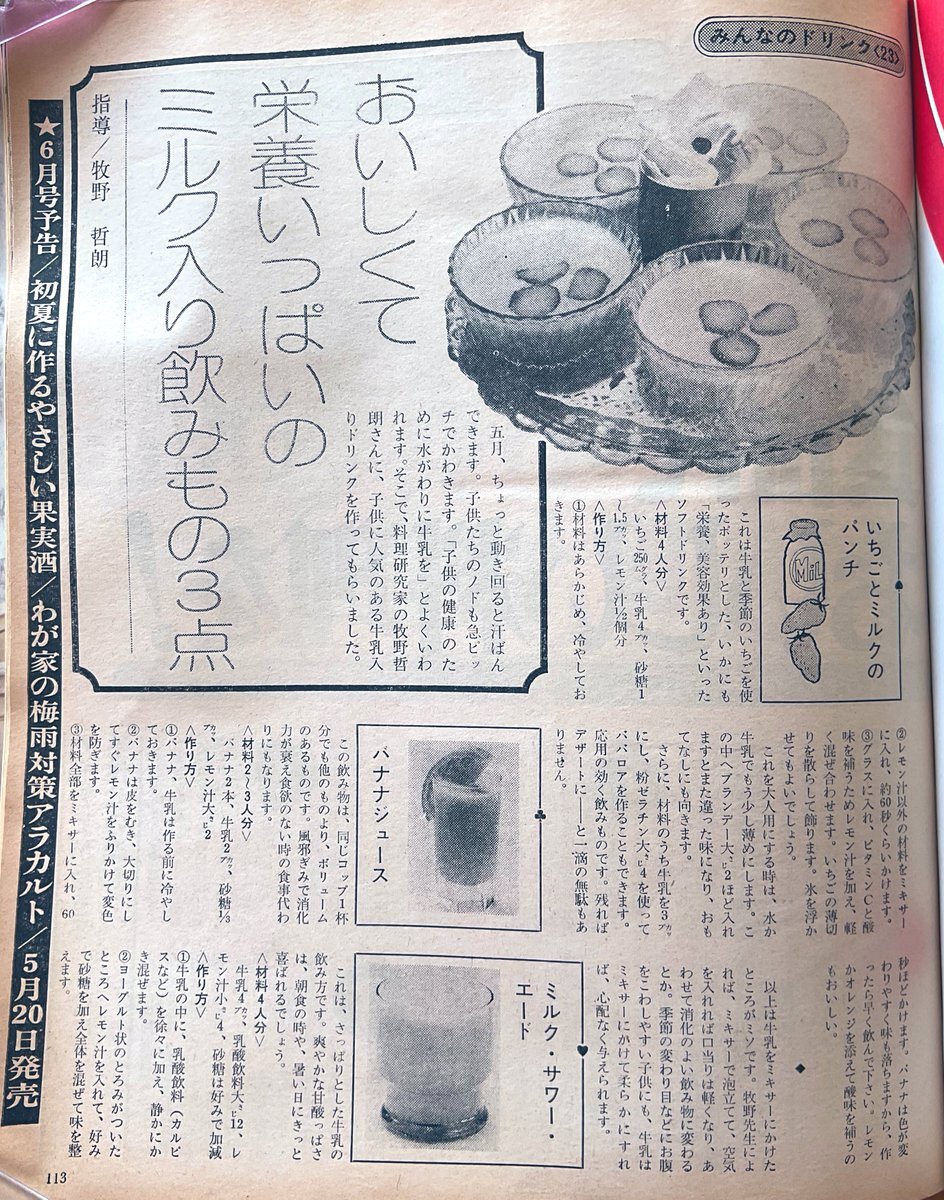 みんなのドリンク〈23〉
おいしくて
栄養いっぱいの
ミルク入り飲みもの3点
指導/牧野 哲朗
五月、ちょっと動き回ると汗ばん
できます。子供たちのノドも急ピッ
チでかわきます。「子供の健康のた
めに水がわりに牛乳を」とよくいわ
れます。そこで、料理研究家の牧野哲
朗さんに、子供に人気のある牛乳入
りドリンクを作ってもらいました。
いちごとミルクの
パンチ
MiL
これは牛乳と季節のいちごを使
ったポッテリとした、いかにも
「栄養、美容効果あり」といった
ソフトドリンクです。
〈材料4人分〉
いちご250㌘、牛乳4㌍、砂糖1
〜1.5㌍、レモン汁½個分
〈作り方〉
①材料はあらかじめ、冷やしてお
きます。
②レモン汁以外の材料をミキサー
に入れ、約60秒くらいかけます。
③グラスに入れ、ビタミンCと酸
味を補うためレモン汁を加え、軽
く混ぜ合わせます。いちごの薄切
りを散らして飾ります。氷を浮か
せてもよいでしょう。
これを大人用にする時は、水か
牛乳でもう少し薄めにします。こ
の中へブランデー大㌚2ほど入れ
ますとまた違った味になり、おも
てなしにも向きます。
さらに、材料のうち牛乳を3㌍
にし、粉ゼラチン大㌚4を使って
ババロアを作ることもできます。
応用の効く飲みものです。残れば
デザートに――と一滴の無駄もあ
りません。
バナナジュース
この飲み物は、同じコップ1杯
分でも他のものより、ボリューム
のあるものです。風邪ぎみで消化
力が衰え食欲のない時の食事代わ
りにもなります。
〈材料2〜3人分〉
バナナ2本、牛乳2㌍、砂糖⅓
㌍、レモン汁大㌚2
〈作り方〉
①バナナ、牛乳は作る前に冷やし
ておきます。
②バナナは皮をむき、大切りにし
てすぐレモン汁をふりかけて変色
を防ぎます。
③材料全部をミキサーに入れ、60
秒ほどかけます。バナナは色が変
わりやすく味も落ちますから、作
ったら早く飲んで下さい。レモン
かオレンジを添えて酸味を補うの
もおいしい。
以上は牛乳をミキサーにかけた
ところがミソです。牧野先生によ
れば、ミキサーで泡立てて、空気
を入れれば口当りは軽くなり、あ
わせて消化のよい飲み物に変わる
とか。季節の変わり目などにお腹
をこわしやすい子供にも、牛乳は
ミキサーにかけて柔らかにすれ
ば、心配なく与えられます。
ミルク・サワー・
エード
これは、さっぱりとした牛乳の
飲み方です。爽やかな甘酸っぱさ
は、朝食の時や、暑い日にきっと
喜ばれるでしょう。
〈材料4人分〉
牛乳4㌍、乳酸飲料大㌚12、レ
モン汁小㌚4、砂糖は好みで加減
〈作り方〉
①牛乳の中に、乳酸飲料(カルピ
スなど)を徐々に加え、静かにか
き混ぜます。
②ヨーグルト状のとろみがついた
ところへレモン汁を入れて、好み
で砂糖を加え全体を混ぜて味を整
えます。
★6月号予告/初夏に作るやさしい果実酒/わが家の梅雨対策アラカルト/5月20日発売
113